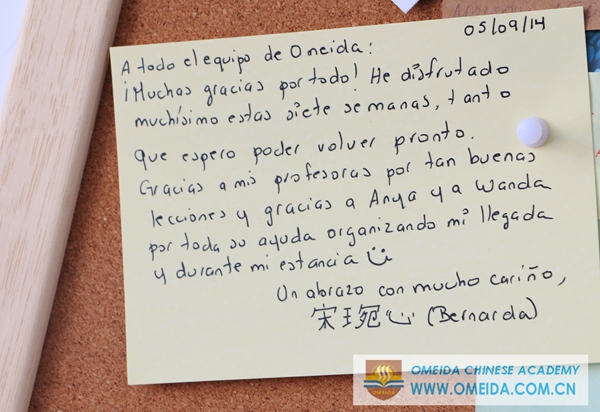 05/09/14
A todo el equipo de Omeida:
¡Muchas gracias por todo! He disfrutado
muchísimo estas siete semanas, tanto
que espero poder volver pronto.
Gracias a mis profesoras por tan buenas
lecciones y gracias a Anya y a Wanda
por toda su ayuda organizando mi llegada
y durante mi estancia
Un abrazo con mucho cariño,
宋琬心 (Bernarda)
OMEIDA CHINESE ACADEMY
WWW.OMEIDA.COM.CN